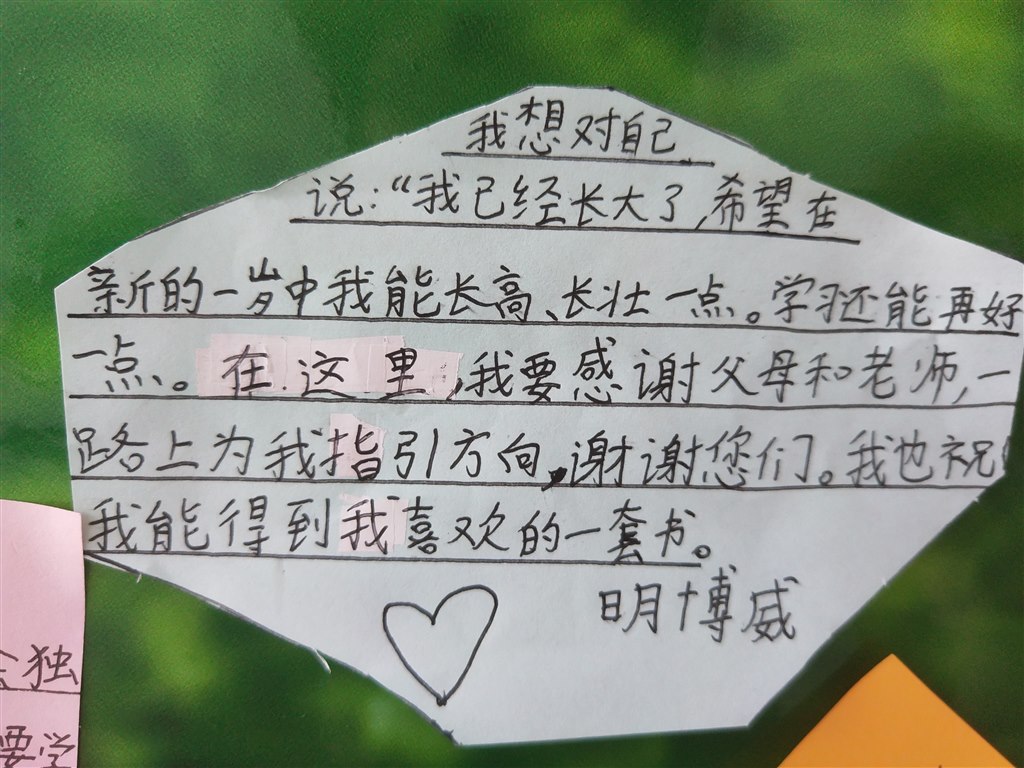 我想对自己
说：“我已经长大了，希望在
新的一岁中我能长高、长壮一点。学习还能再好
一点。在这里，我要感谢父母和老师，一
路上为我指引方向，谢谢您们。我也祝
我能得到我喜欢的一套书。
明博威
独
要学